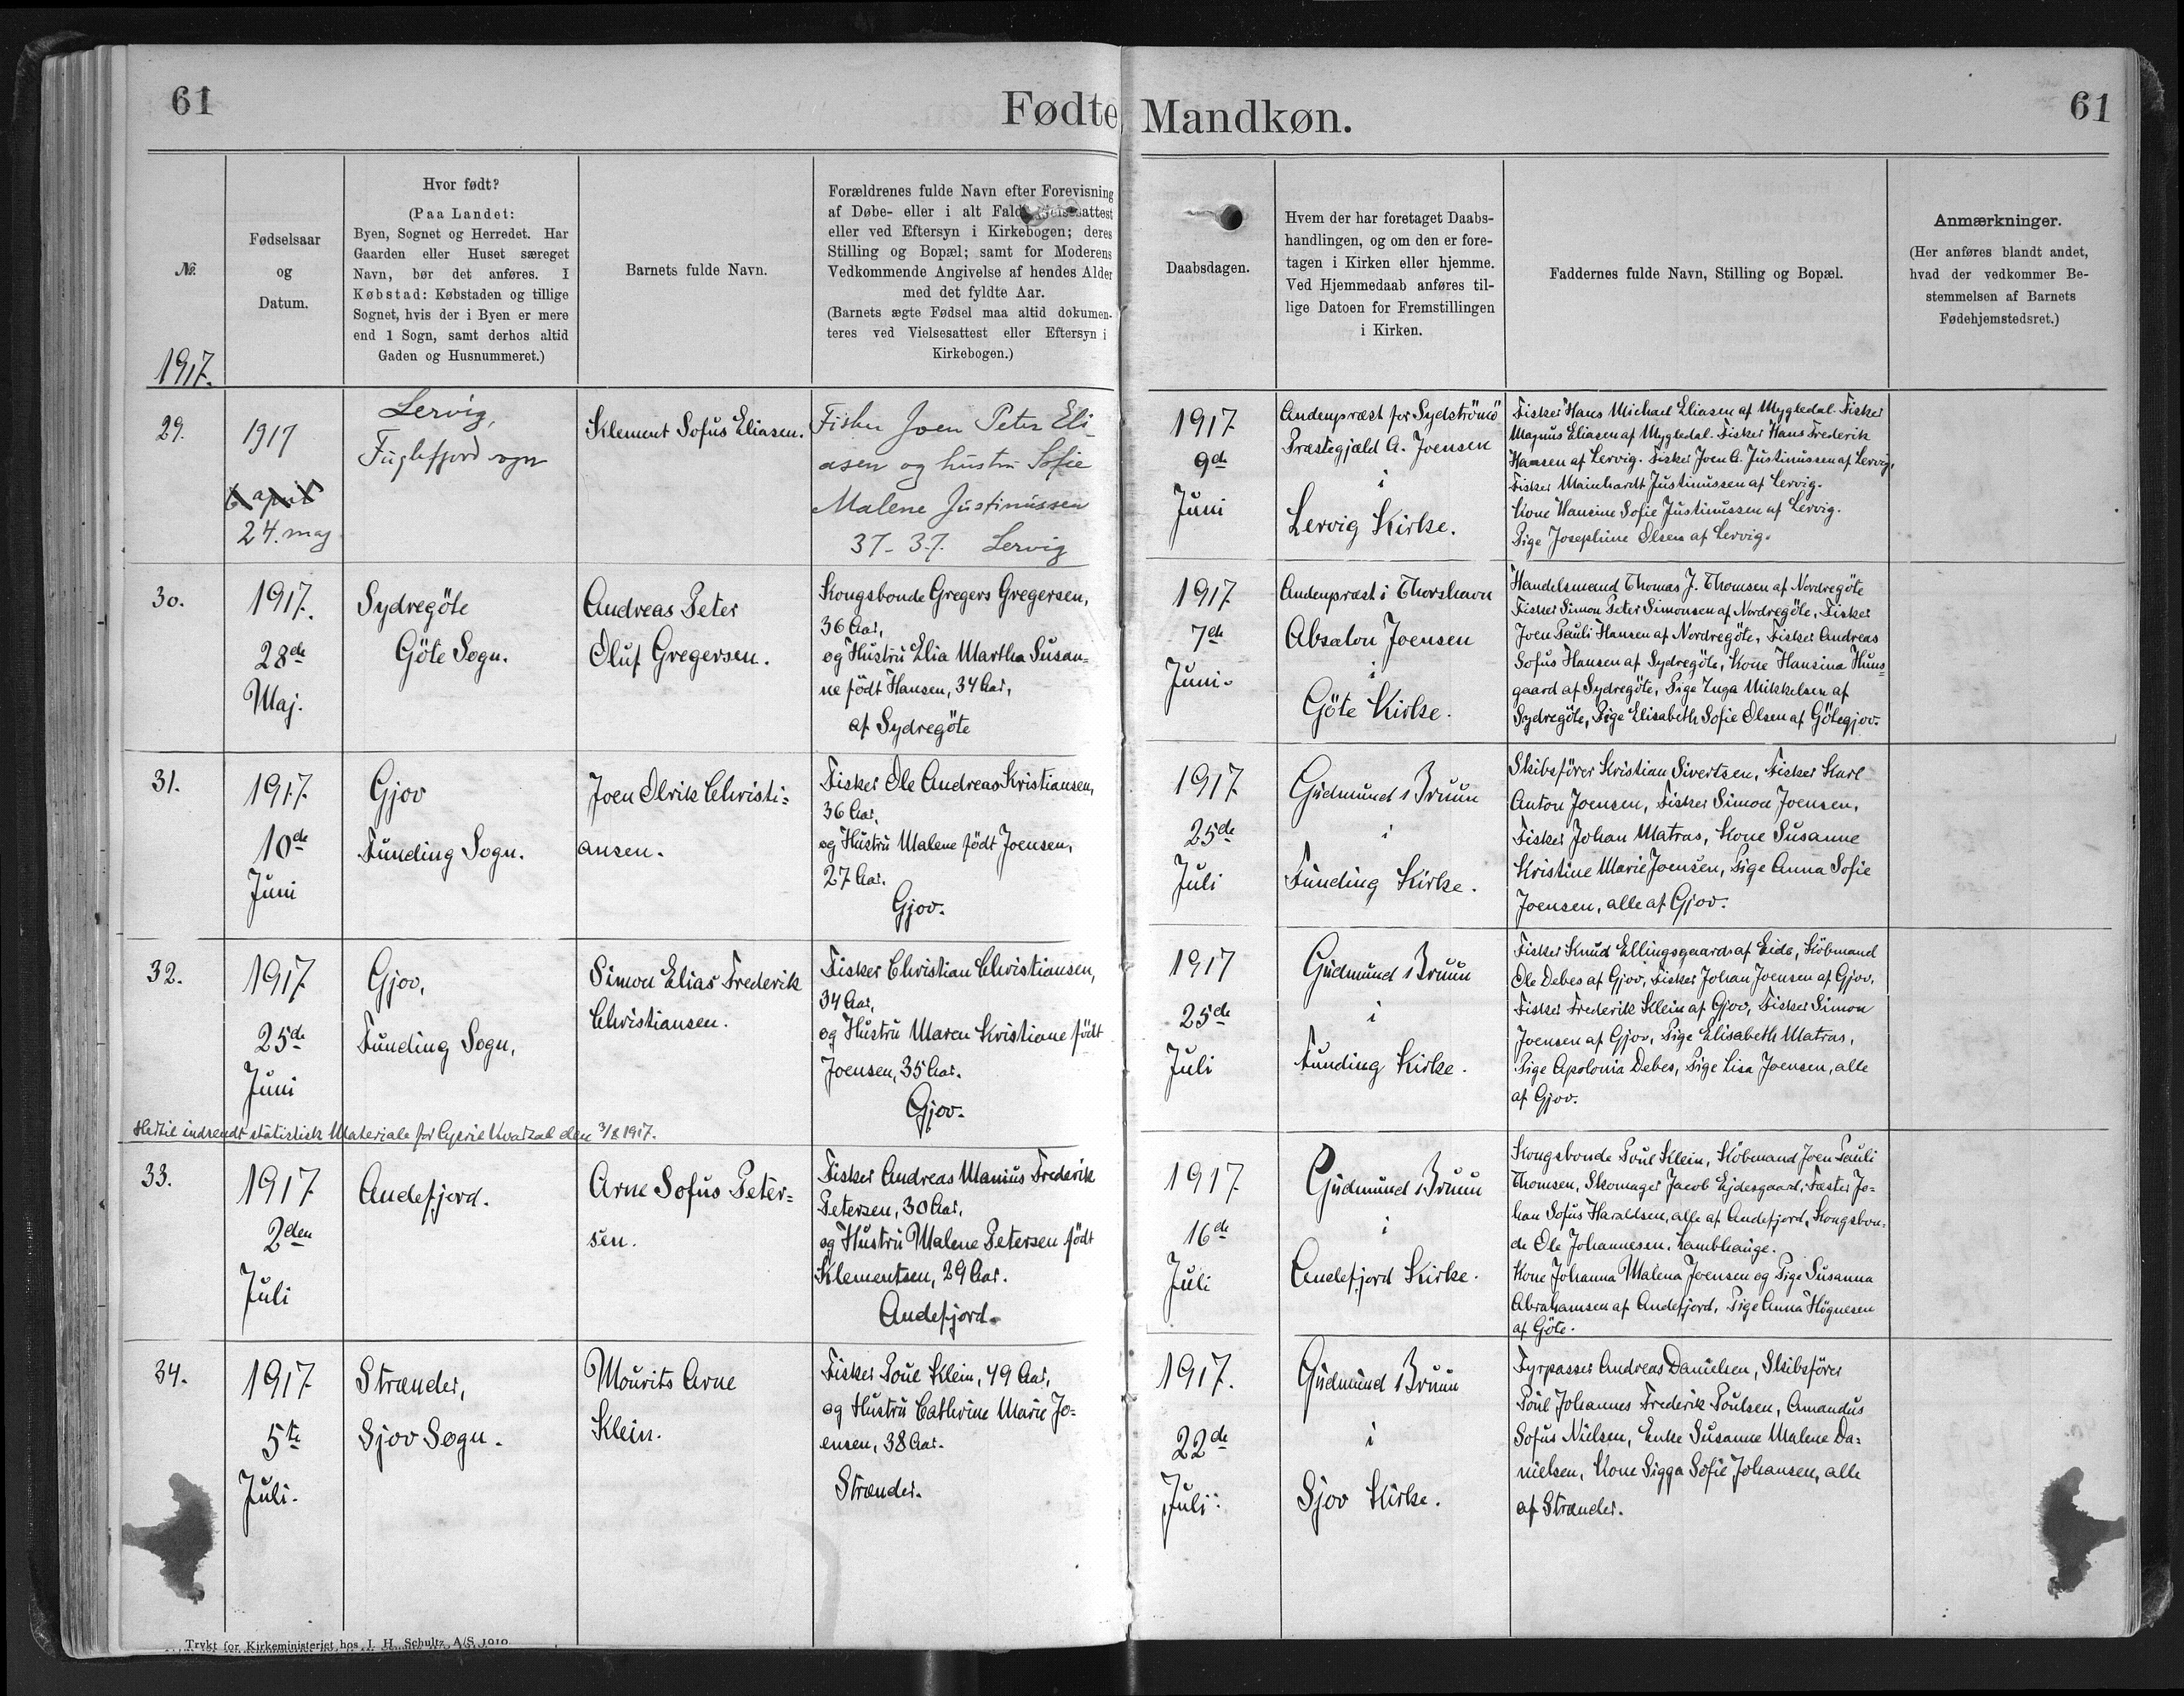 61
Fødte, Mandkøn.
61
№
1917.
Fødselsaar
og
Datum.
Hvor født?
(Paa Landet:
Byen, Sognet og Herredet. Har
Gaarden eller Huset særeget
Navn, bør det anføres. I
Købstad: Købstaden og tillige
Sognet, hvis der i Byen er mere
end 1 Sogn, samt derhos altid
Gaden og Husnummeret.)
Barnets fulde Navn.
Forældrenes fulde Navn efter Forevisning
af Døbe- eller i alt Fald
eller ved Eftersyn i Kirkebogen; deres
Stilling og Bopæl; samt for Moderens
Vedkommende Angivelse af hendes Alder
med det fyldte Aar.
(Barnets ægte Fødsel maa altid dokumen-
teres ved Vielsesattest eller Eftersyn i
Kirkebogen.)
Daabsdagen.
Hvem der har foretaget Daabs-
handlingen, og om den er fore-
tagen i Kirken eller hjemme.
Ved Hjemmedaab anføres til-
lige Datoen for Fremstillingen
i Kirken.
Faddernes fulde Navn, Stilling og Bopæl.
Anmærkninger.
(Her anføres blandt andet,
hvad der vedkommer Be-
stemmelsen af Barnets
Fødehjemstedsret.)
29.
1917
6 april
24. maj
Lervig,
Fuglefjord sogn
Klement Sofus Eliasen.
Fisker Joen Peter Eli-
asen og hustru Sofie
Malene Justinussen
37- 37. Lervig
1917
9de
Juni
Andenpræst for Sydströmö
Præstegjæld A. Joensen
i
Lervig Kirke.
Fisker Hans Michael Eliasen af Mygledal. Fisker
Magnus Eliasen af Mygledal. Fisker Hans Frederik
Hansen af Lervig. Fisker Joen A. Justinussen af Lervig,
Fisker Mainhardt Justinussen af Lervig.
Kone Hansine Sofie Justinussen af Lervig.
Pige Josephine Olsen af Lervig.
30.
1917.
28de
Maj.
Sydregöte
Göte Sogn.
Andreas Peter
Oluf Gregersen.
Kongsbonde Gregers Gregersen,
36 Aar,
og Hustru Elia Martha Susan=
ne födt Hansen, 34 Aar,
af Sydregöte
1917
7de
Juni.
Andenpræst i Thorshavn
Absalon Joensen
i
Göte Kirke.
Handelsmand Thomas J. Thomsen af Nordregöte
Fisker Simon Peter Simonsen af Nordregöte, Fisker
Joen Pauli Hansen af Nordregöte, Fisker Andreas
Sofus Hansen af Sydregöte, Kone Hansina Huus=
gaard af Sydregöte, Pige Inga Mikkelsen af
Sydregöte, Pige Elisabeth Sofie Olsen af Götegjov.
31.
1917.
10de
Juni
Gjov
Funding Sogn.
Joen Olrik Christi=
ansen.
Fisker Ole Andreas Kristiansen,
36 Aar,
og Hustru Malene födt Joensen,
27 Aar.
Gjov.
1917
25de
Juli
Gudmund Bruun
i
Funding Kirke.
Skibsförer Kristian Sivertsen, Fisker Karl
Anton Joensen, Fisker Simon Joensen,
Fisker Johan Matras, Kone Susanne
Kristine Marie Joensen, Pige Anna Sofie
Joensen, alle af Gjov.
32.
1917
25de
Juni
Gjov,
Funding Sogn,
Simon Elias Frederik
Christiansen.
Fisker Christian Christiansen,
34 Aar,
og Hustru Maren Kristiane födt
Joensen, 35 Aar.
Gjov.
1917
25de
Juli
Gudmund Bruun
i
Funding Kirke.
Fisker Knud Ellingsgaard af Eide, Köbmand
Ole Debes af Gjov, Fisker Johan Joensen af Gjov,
Fisker Frederik Klein af Gjov, Fisker Simon
Joensen af Gjov, Pige Elisabeth Matras,
Pige Apolonia Debes, Pige Lisa Joensen, alle
af Gjov.
Hertil indsendt statistisk Materiale for Kvartal den 3/8 1917.
33.
1917
2den
Juli
Andefjord.
Arne Sofus Peter=
sen.
Fisker Andreas Manius Frederik
Petersen, 30 Aar,
og Hustru Malene Petersen födt
Klementsen, 29 Aar.
Andefjord.
1917
16de
Juli
Gudmund Bruun
i
Andefjord Kirke.
Kongsbonde Poul Klein, Köbmand Joen Pauli
Thomsen, Skomager Jacob Ejdesgaard, Fæster Jo=
han Sofus Haraldsen, alle af Andefjord, Kongsbon=
de Ole Johannesen, Lambhauge.
Kone Johanna Malena Joensen og Pige Susanna
Abrahamsen af Andefjord, Pige Anna Högnesen
af Göte.
34.
1917
5te
Juli.
Strænder,
Sjov Sogn.
Mourits Arne
Klein.
Fisker Poul Klein, 49 Aar,
og Hustru Cathrine Marie Jo=
ensen, 38 Aar.
Strænder.
1917.
22de
Juli.
Gudmund Bruun
i
Sjov Kirke.
Fyrpasser Andreas Danielsen, Skibsförer
Poul Johannes Frederik Poulsen, Amandus
Sofus Nielsen, Enke Susanne Malene Da=
nielsen, Kone Sigga Sofie Johansen, alle
af Strænder.
Trykt for Kirkeministeriet hos J. H. Schultz A/S